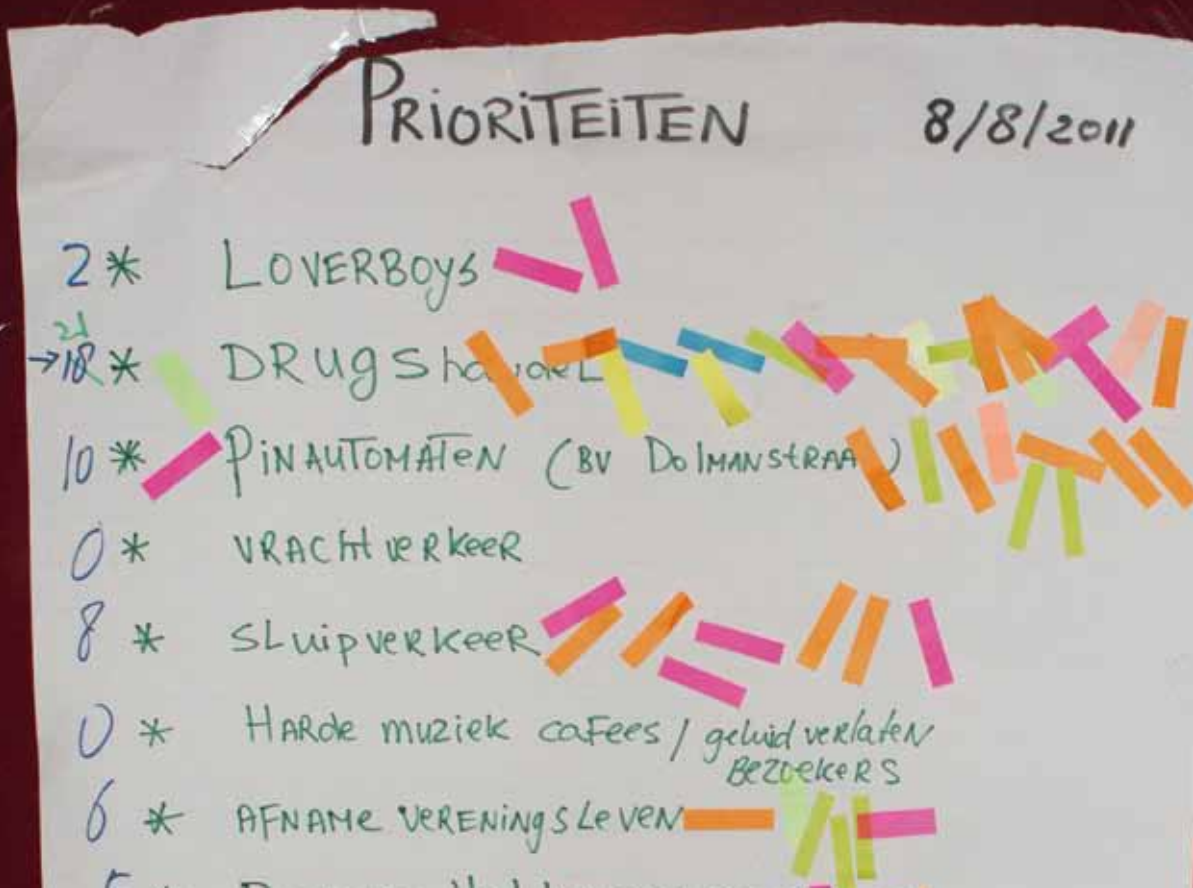 PRIORITEITEN 8/8/2011
2* LOVERBOYS
21
→18* DRUGShandel
10* PINAUTOMATEN (BV DOLMANSTRAA )
0* VRACHTVERKEER
8* SLUIPVERKEER
0* HARDE muziek caFees / geluid verlaten
BEZOEKERS
6* AFNAME VERENINGSLEVEN